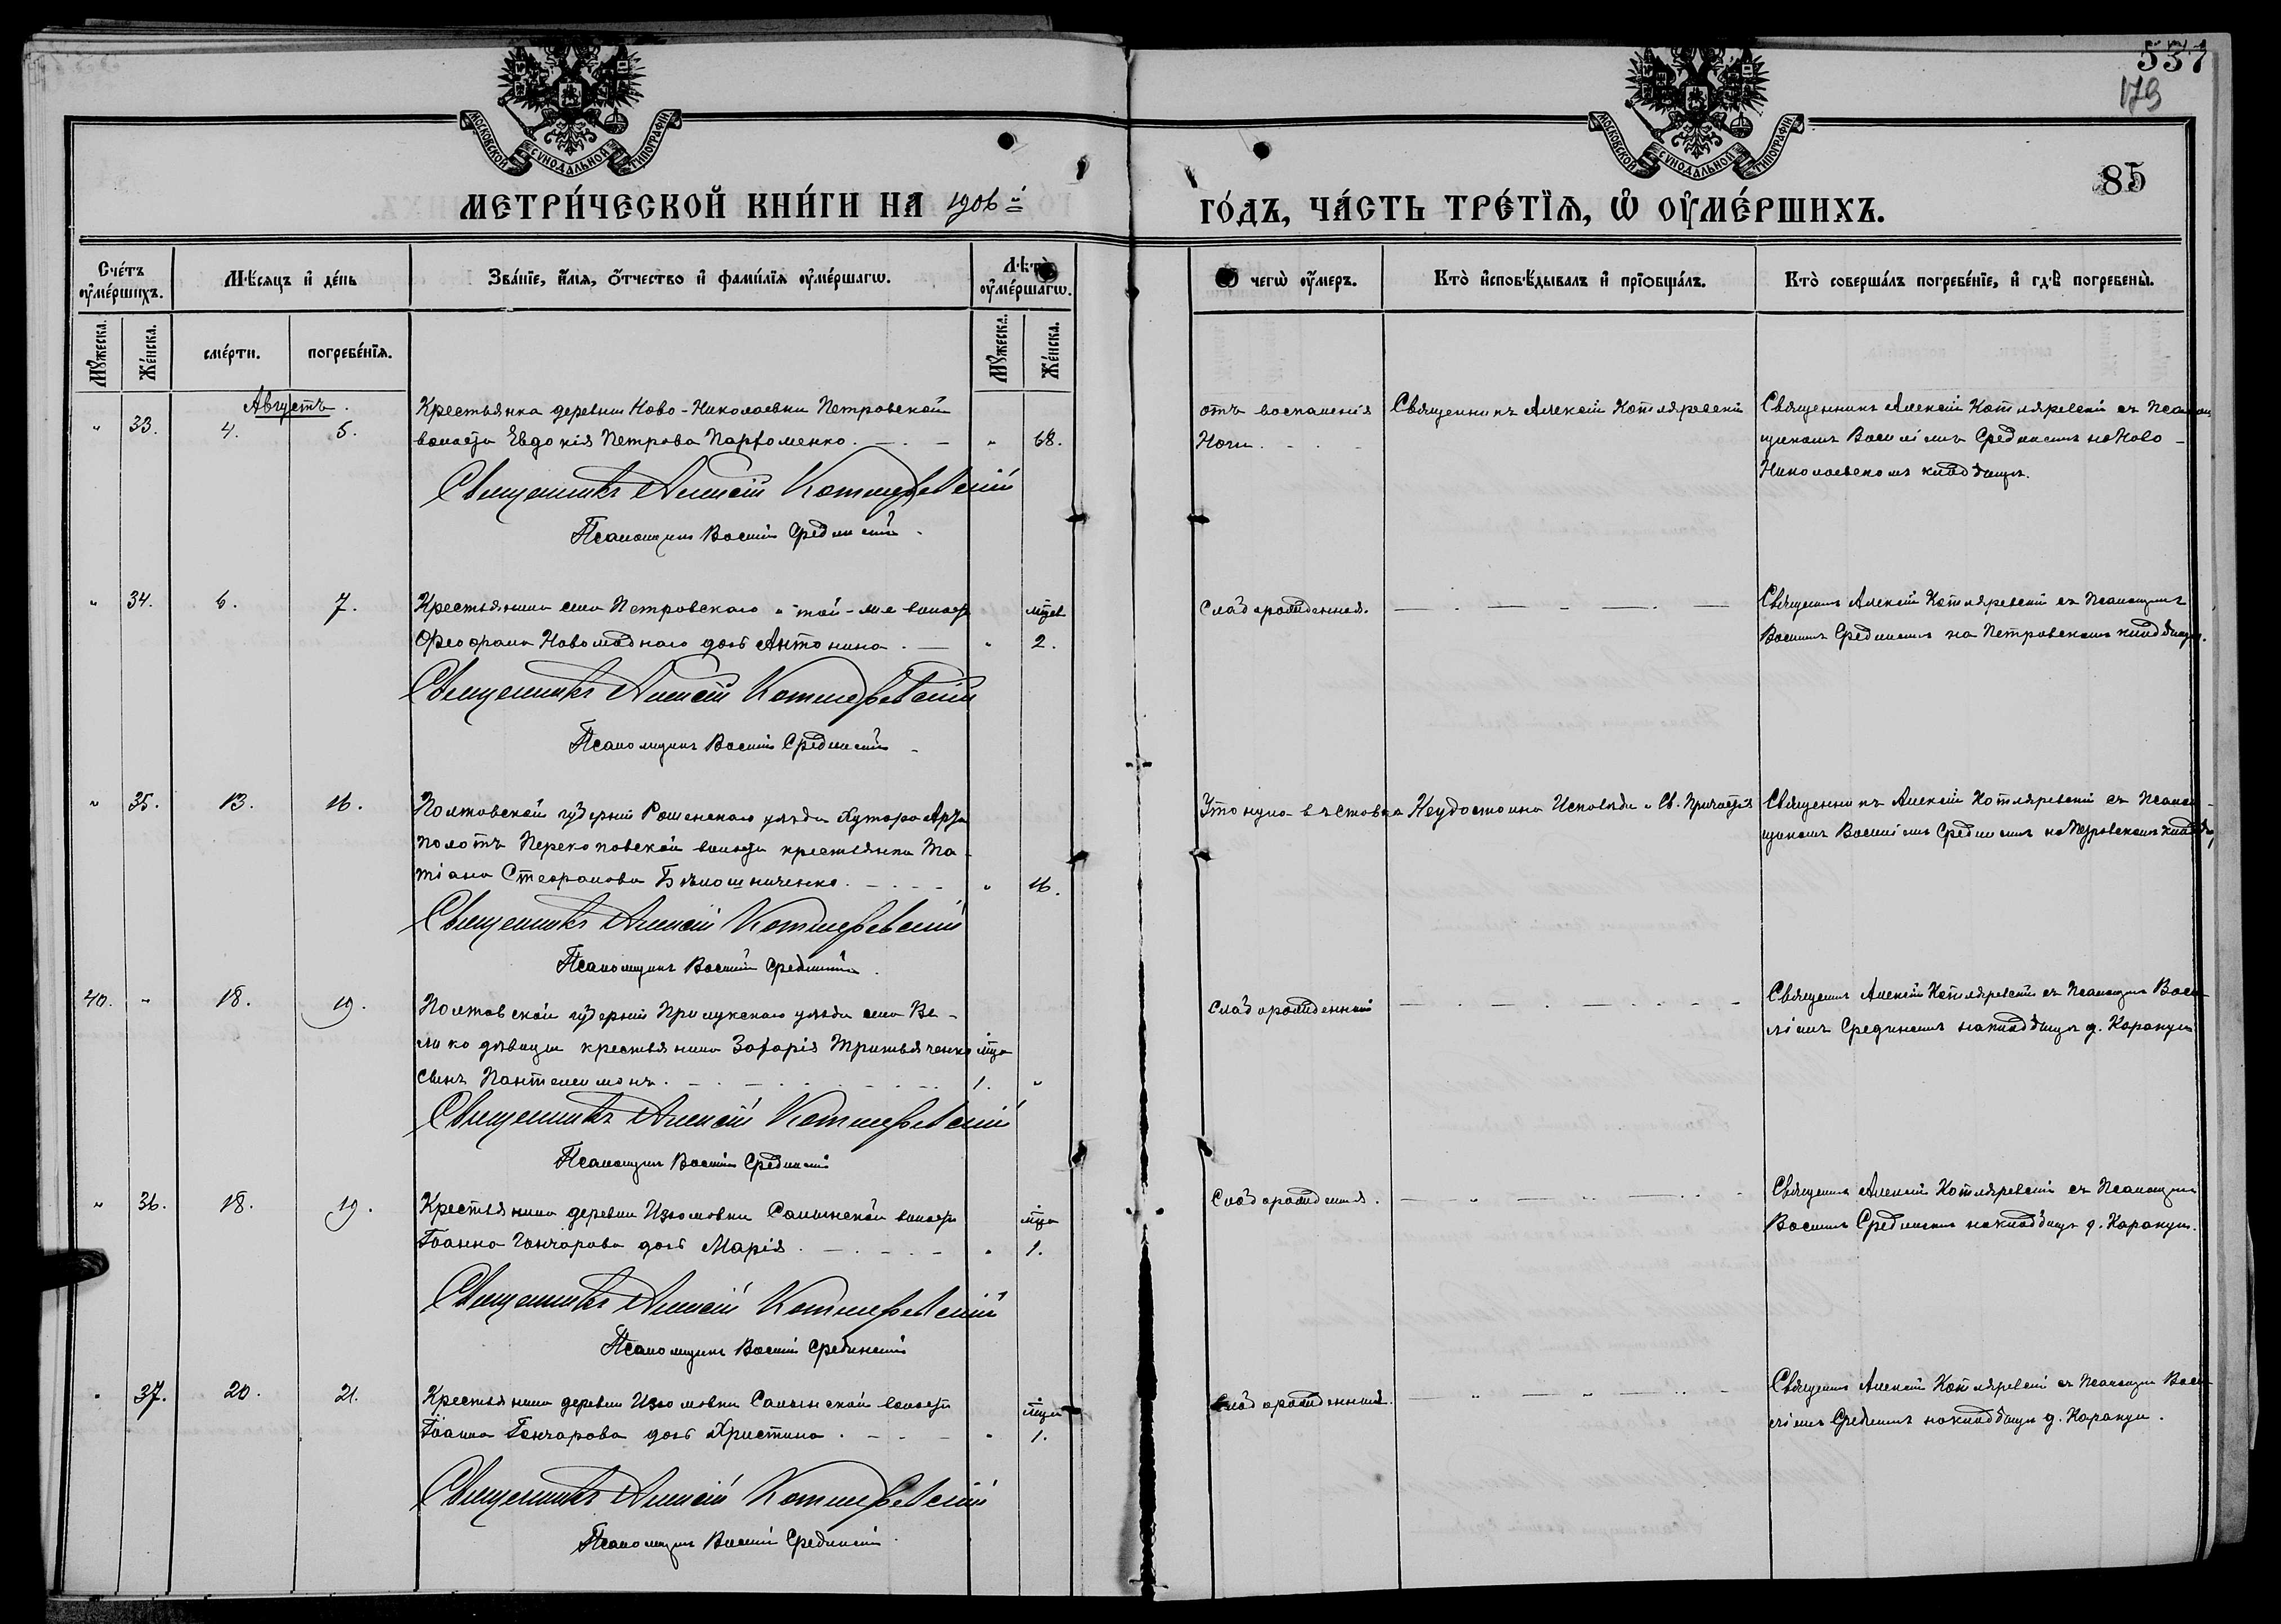 537
179
85
МОСКОВСКОЙ СѴНОДАЛЬНОЙ ТИПОГРАФІИ
МОСКОВСКОЙ СѴНОДАЛЬНОЙ ТИПОГРАФІИ
МЕТРИ́ЧЕСКОЙ КНИ́ГИ НА 1906-й ГО́ДЪ, ЧА́СТЬ ТРЕ́ТЇѦ, Ѡ҆ ОУ҆МЕ́РШИХЪ.
Сче́тъ оу҆ме́ршихъ.
Мꙋ́жеска.
Же́нска.
Мѣ́сяцъ и҆ де́нь
сме́рти.
погребе́нїя.
Зва́нїе, и҆́мя, ѻ҆́тчество и҆ фами́лїя оу҆ме́ршагѡ.
Лѣ́та оу҆ме́ршагѡ.
Мꙋ́жеска.
Же́нска.
Ѿ чегѡ̀ оу҆́меръ.
Кто̀ и҆сповѣ́дывалъ и҆ прїѻбща́лъ.
Кто̀ соверша́лъ погребе́нїе, и҆ гдѣ̀ погребены̀.
Августъ.
" 33. 4. 5.
Крестьянка деревни Ново-Николаевки Петровской
волости Евдокія Петрова Парфоменко. " 68.
Священникъ Алексій Котляревскій
Псаломщикъ Василій Срединскій
отъ воспаленія
Ночи
Священникъ Алексій Котляревскій
Священникъ Алексій Котляревскій съ Псалом
щикомъ Василіемъ Срединскимъ на Ново-
Николаевскомъ кладбищѣ.
" 34. 6. 7.
Крестьянина села Петровскаго и той-же волости мѣсяц
Феофана Новомоднаго дочь Антонина. " 2.
Священникъ Алексій Котляревскій
Псаломщикъ Василій Срединскій
Слаборожденная.
Священникъ Алексій Котляревскій съ Псаломщикомъ
Василіемъ Срединскимъ на Петровскомъ кладбищѣ.
" 35. 13. 16.
Полтовской губерніи Роменскаго уѣзда Хутора
Перекоповской волости крестьянка Та-
тіана Стефанова Бѣлошниченко. " 16.
Священникъ Алексій Котляревскій
Псаломщикъ Василій Срединскій.
Утонула въ ставѣ
Неудостоина Исповѣди и Св. Причастія
Священникъ Алексій Котляревскій съ Псалом-
щикомъ Василіемъ Срединскимъ на Петровскомъ кладб.
40. " 18. 19.
Полтовской губерніи Прилукскаго уѣзда села Ве-
лико дѣвицы крестьянина Захарія Тритьяченко мѣсяца
сынъ Пантелеимонъ. 1. "
Священникъ Алексій Котляревскій
Псаломщикъ Василій Срединскій
Слаборожденный
Священникъ Алексій Котляревскій съ Псаломщик. Васи-
ліемъ Срединскимъ на кладбищѣ д. Каракуц
" 36. 18. 19.
Крестьянина деревни Изюмовки Салынской волости мѣсяца
Іоанна Гончарова дочь Марія. " 1.
Священникъ Алексій Котляревскій
Псаломщикъ Василій Срединскій
Слаборожденная.
Священникъ Алексій Котляревскій съ Псаломщикомъ
Василіемъ Срединскимъ на кладбищѣ д. Каракуц.
" 37. 20. 21.
Крестьянина деревни Изюмовки Салынской волости мѣсяца
Іоанна Гончарова дочь Христина. " 1.
Священникъ Алексій Котляревскій
Псаломщикъ Василій Срединскій
Слаборожденная.
Священникъ Алексій Котляревскій съ Псаломщик. Васи-
ліемъ Срединскимъ на кладбищѣ д. Каракуц.